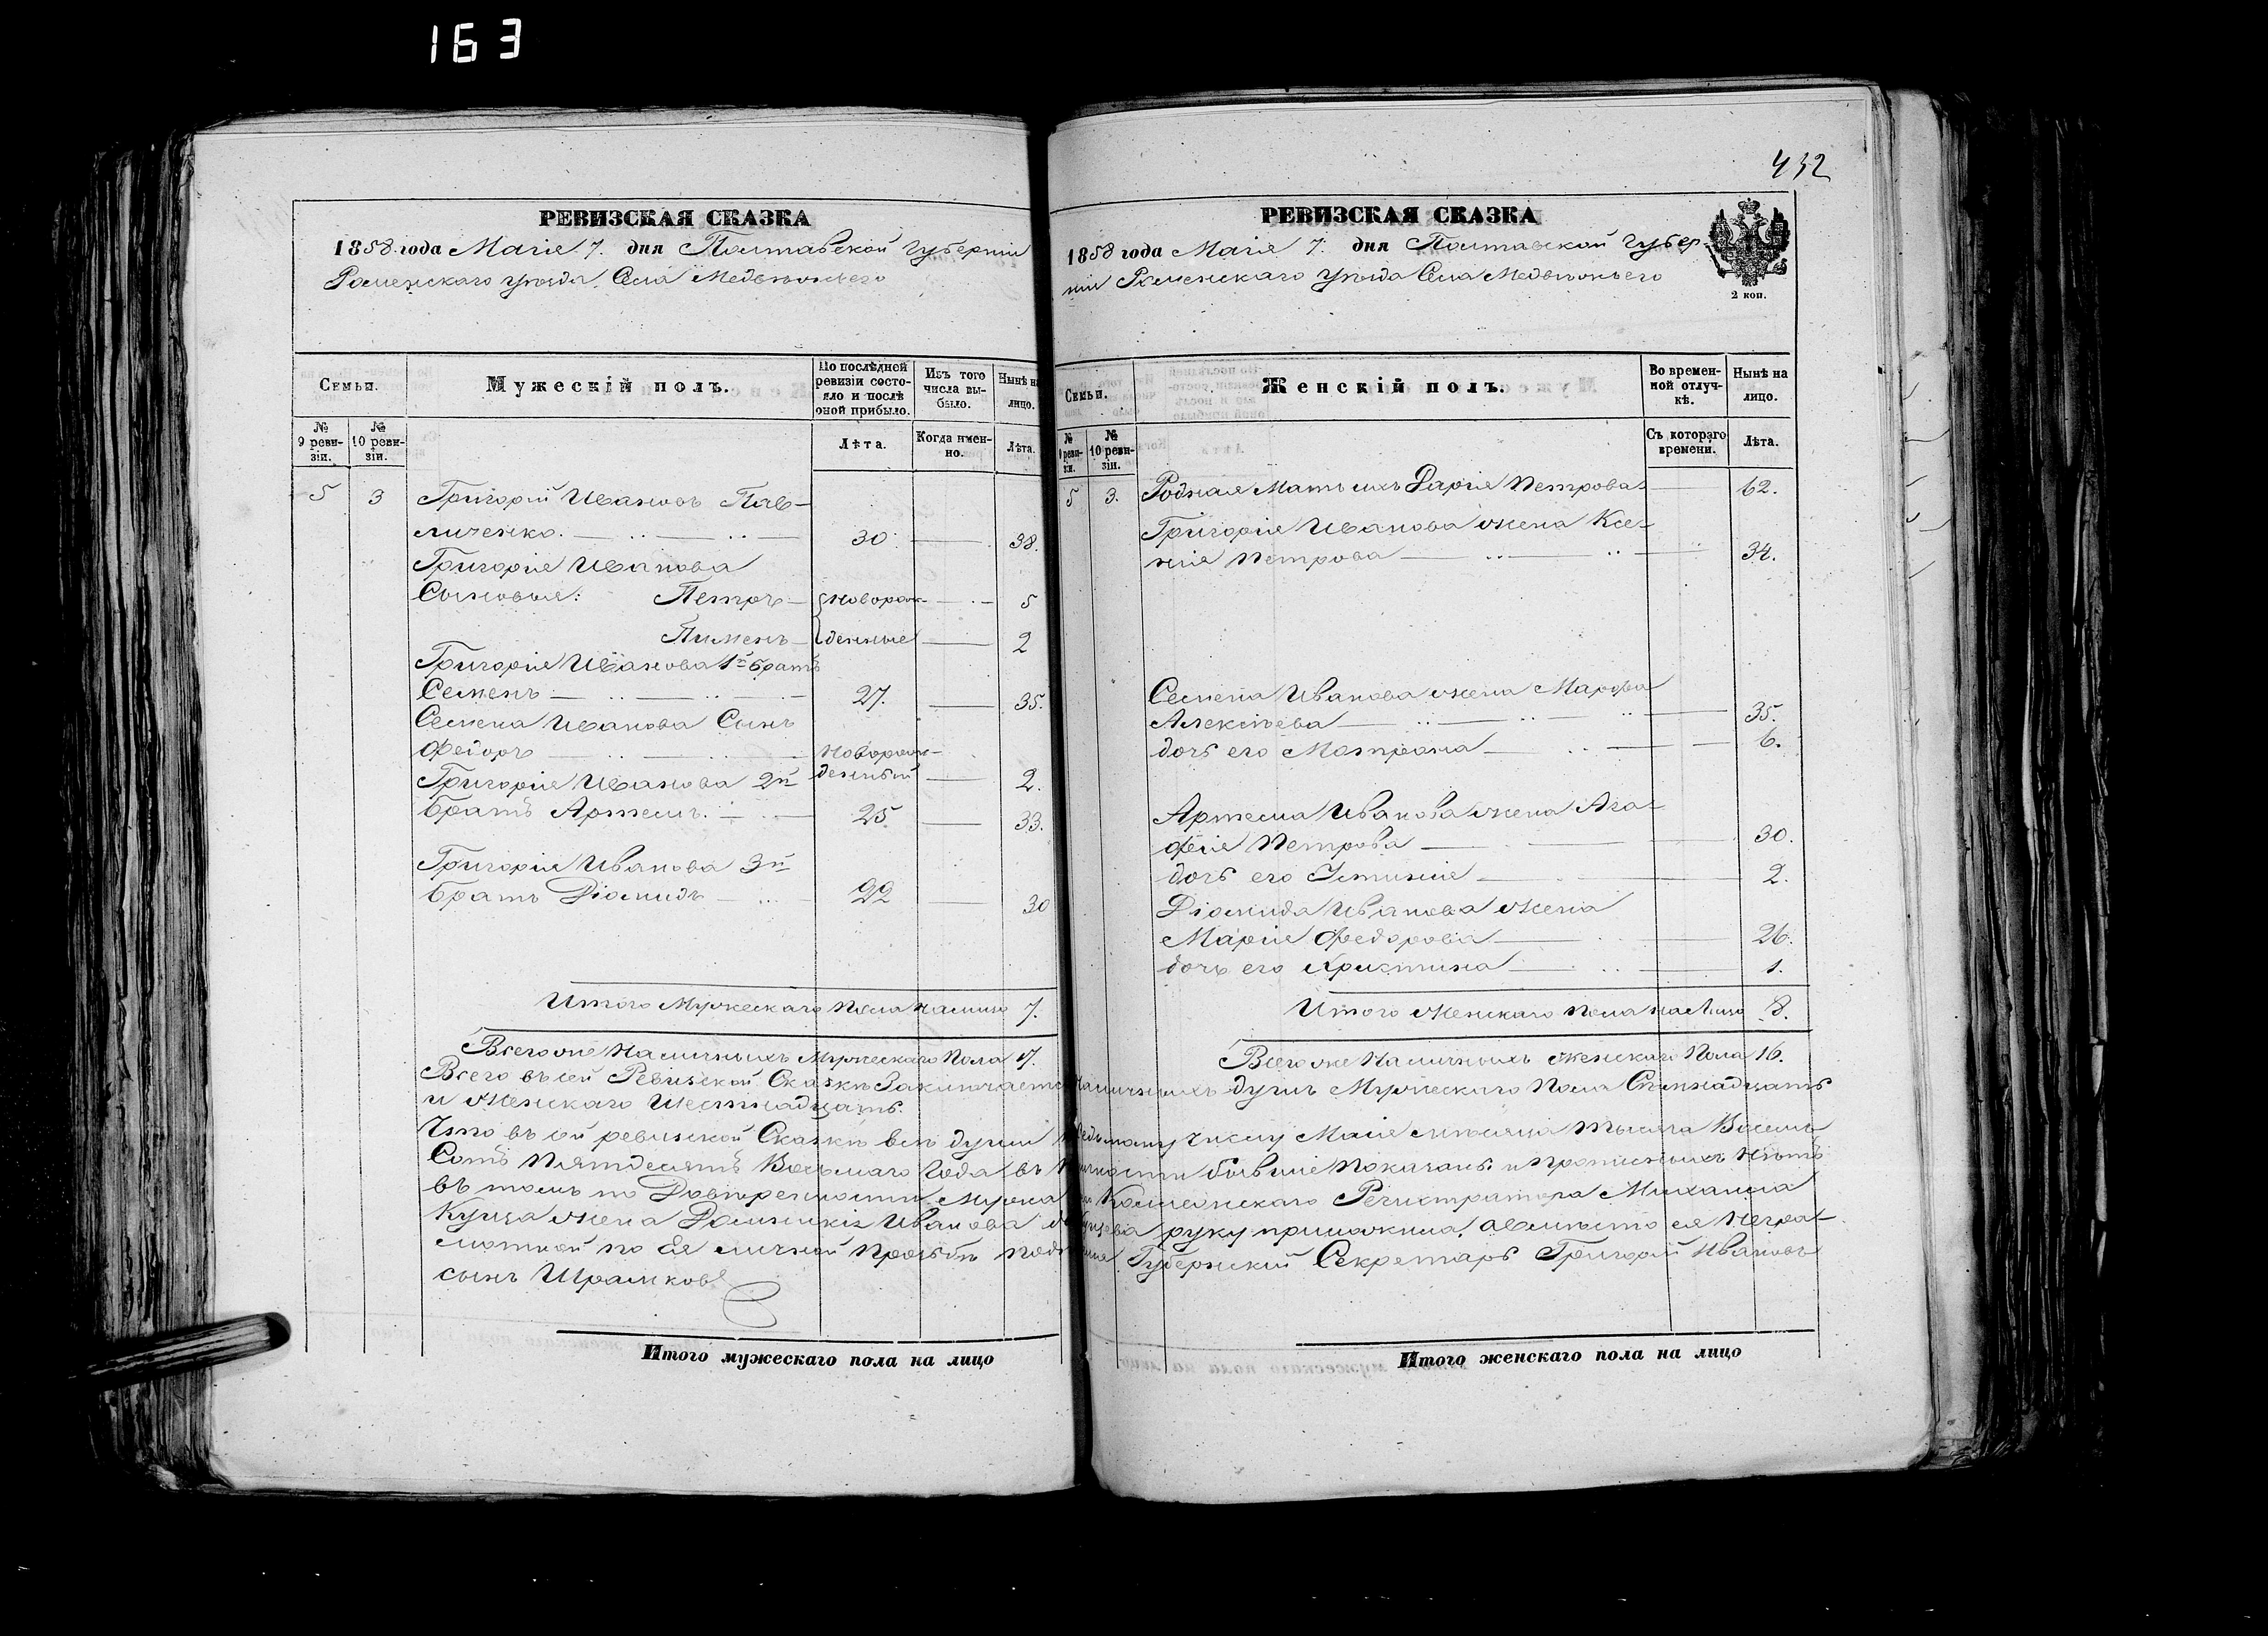 163
432
РЕВИЗСКАЯ СКАЗКА
1858 года Маія 7. дня Полтавской Губерніи
Роменскаго уѣзда, Села Медвѣжьего
Семьи.
Мужескій полъ.
По послѣдней ревизіи состояло и послѣ оной прибыло.
Изъ того числа выбыло.
Нынѣ на лицо.
№ 9 ревизіи.
№ 10 ревизіи.
Лѣта.
Когда именно.
Лѣта.
5 3 Григорій Ивановъ Пав-
личенко. 30. 38.
Григорія Иванова
Сыновья: Петръ новорож- 5
Пименъ денные 2
Григорія Иванова 1й братъ
Семенъ 27. 35.
Семена Иванова Сынъ
Федоръ новорож-
Григорія Иванова 2й денный 2.
братъ Артемъ. 25 33.
Григорія Иванова 3й
братъ Діомидъ 22 30
Итого Мужескаго пола налицо 7.
Всего же Наличныхъ Мужескаго Пола 17.
РЕВИЗСКАЯ СКАЗКА
1858 года Маія 7. дня Полтавской Губер-
ніи Роменскаго Уѣзда Села Медвѣжьего
2 коп.
Семьи.
Женскій полъ.
Во временной отлучкѣ.
Нынѣ на лицо.
№ 9 ревизіи.
№ 10 ревизіи.
Съ котораго времени.
Лѣта.
5 3. Родная Мать ихъ Дарія Петрова 62.
Григорія Иванова жена Ксе-
нія Петрова 34.
Семена Иванова жена Марфа
Алексѣева 35.
дочь его Матрона 6.
Артема Иванова жена Ага-
фія Петрова 30.
дочь его Устинія 2.
Діомида Иванова жена
Марія Федорова 26.
дочь его Христина 1.
Итого Женскаго пола на Лицо 8.
Всего же Наличныхъ Женскаго Пола 16.
Всего въ сей Ревизской Сказкѣ Заключается наличныхъ душъ Мужескаго Пола Семнадцать
и Женскаго Шестнадцать.
Что въ сей ревизской Сказкѣ всѣ души къ седьмому числу Маія мѣсяца тысяча Восемь
Сотъ Пятдесятъ Восьмаго Года въ наличности бывшіе показаны и прописныхъ нѣтъ
въ томъ по Довѣренности Мужа Коллежскаго Регистратора Михаила
Купца жена Домникія Иванова Купцева руку приложила, а вмѣсто ея Негра-
мотной по Ея личной Прозьбѣ Губернскій Секретарь Григорій Ивановъ
сынъ Шрамковъ
Итого мужескаго пола на лицо
Итого женскаго пола на лицо